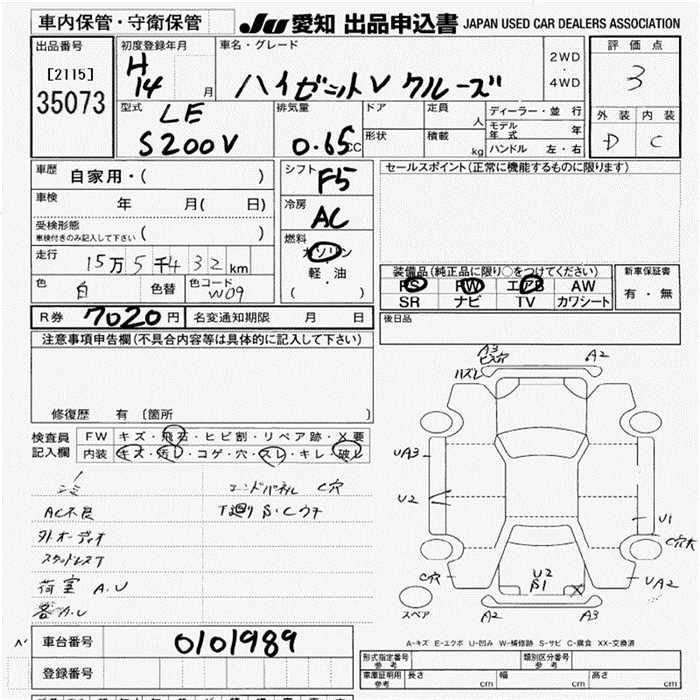 車内保管・守衛保管
JU 愛知 出品申込書 JAPAN USED CAR DEALERS ASSOCIATION
出品番号
[2115]
35073
初度登録年月
H
14 月
車名・グレード
ハイゼットV クルーズ
2WD
・
4WD
評価点
3
外装 内装
D C
型式
LE
S200V
排気量
0.65CC
ドア
形状
定員
人
積載
kg
ディーラー・並行
モデル年式 年
ハンドル 左・右
車歴
自家用・( )
車検
年 月( 日)
受検形態
車検付きのみ記入して下さい ( )
走行
15万5千432km
色
白
色替
色コード
W09
シフト
F5
冷房
AC
燃料
ガソリン
・
軽油
( )
セールスポイント(正常に機能するものに限ります)
装備品(純正品に限り○をつけてください)
PS PW エアB AW
SR ナビ TV カワシート
新車保証書
有・無
R券 7020円
名変通知期限 月 日
後日品
注意事項申告欄(不具合内容等は具体的に記入して下さい)
修復歴 有 〔箇所 〕
検査員
記入欄
FW キズ・飛石・ヒビ割・リペア跡・X要
内装 キズ・汚レ・コゲ・穴・スレ・キレ・破レ
シミ
AC不良
外オーディオ
スタッドレスT
荷室 A.U
エンドパネル C穴
下廻り S・Cウチ
A3
ビス穴
ハズレ
A2
UA3
U2
U1
C穴大
C穴
U2
S1
X
UA2
スペア
A2
A3
車台番号
0101989
登録番号
A-キズ E-エクボ U-凹み W-補修跡 S-サビ C-腐食 XX-交換済
形式指定番号
参考
類別区分番号
参考
車庫証明用
参考
長さ cm
幅 cm
高さ cm